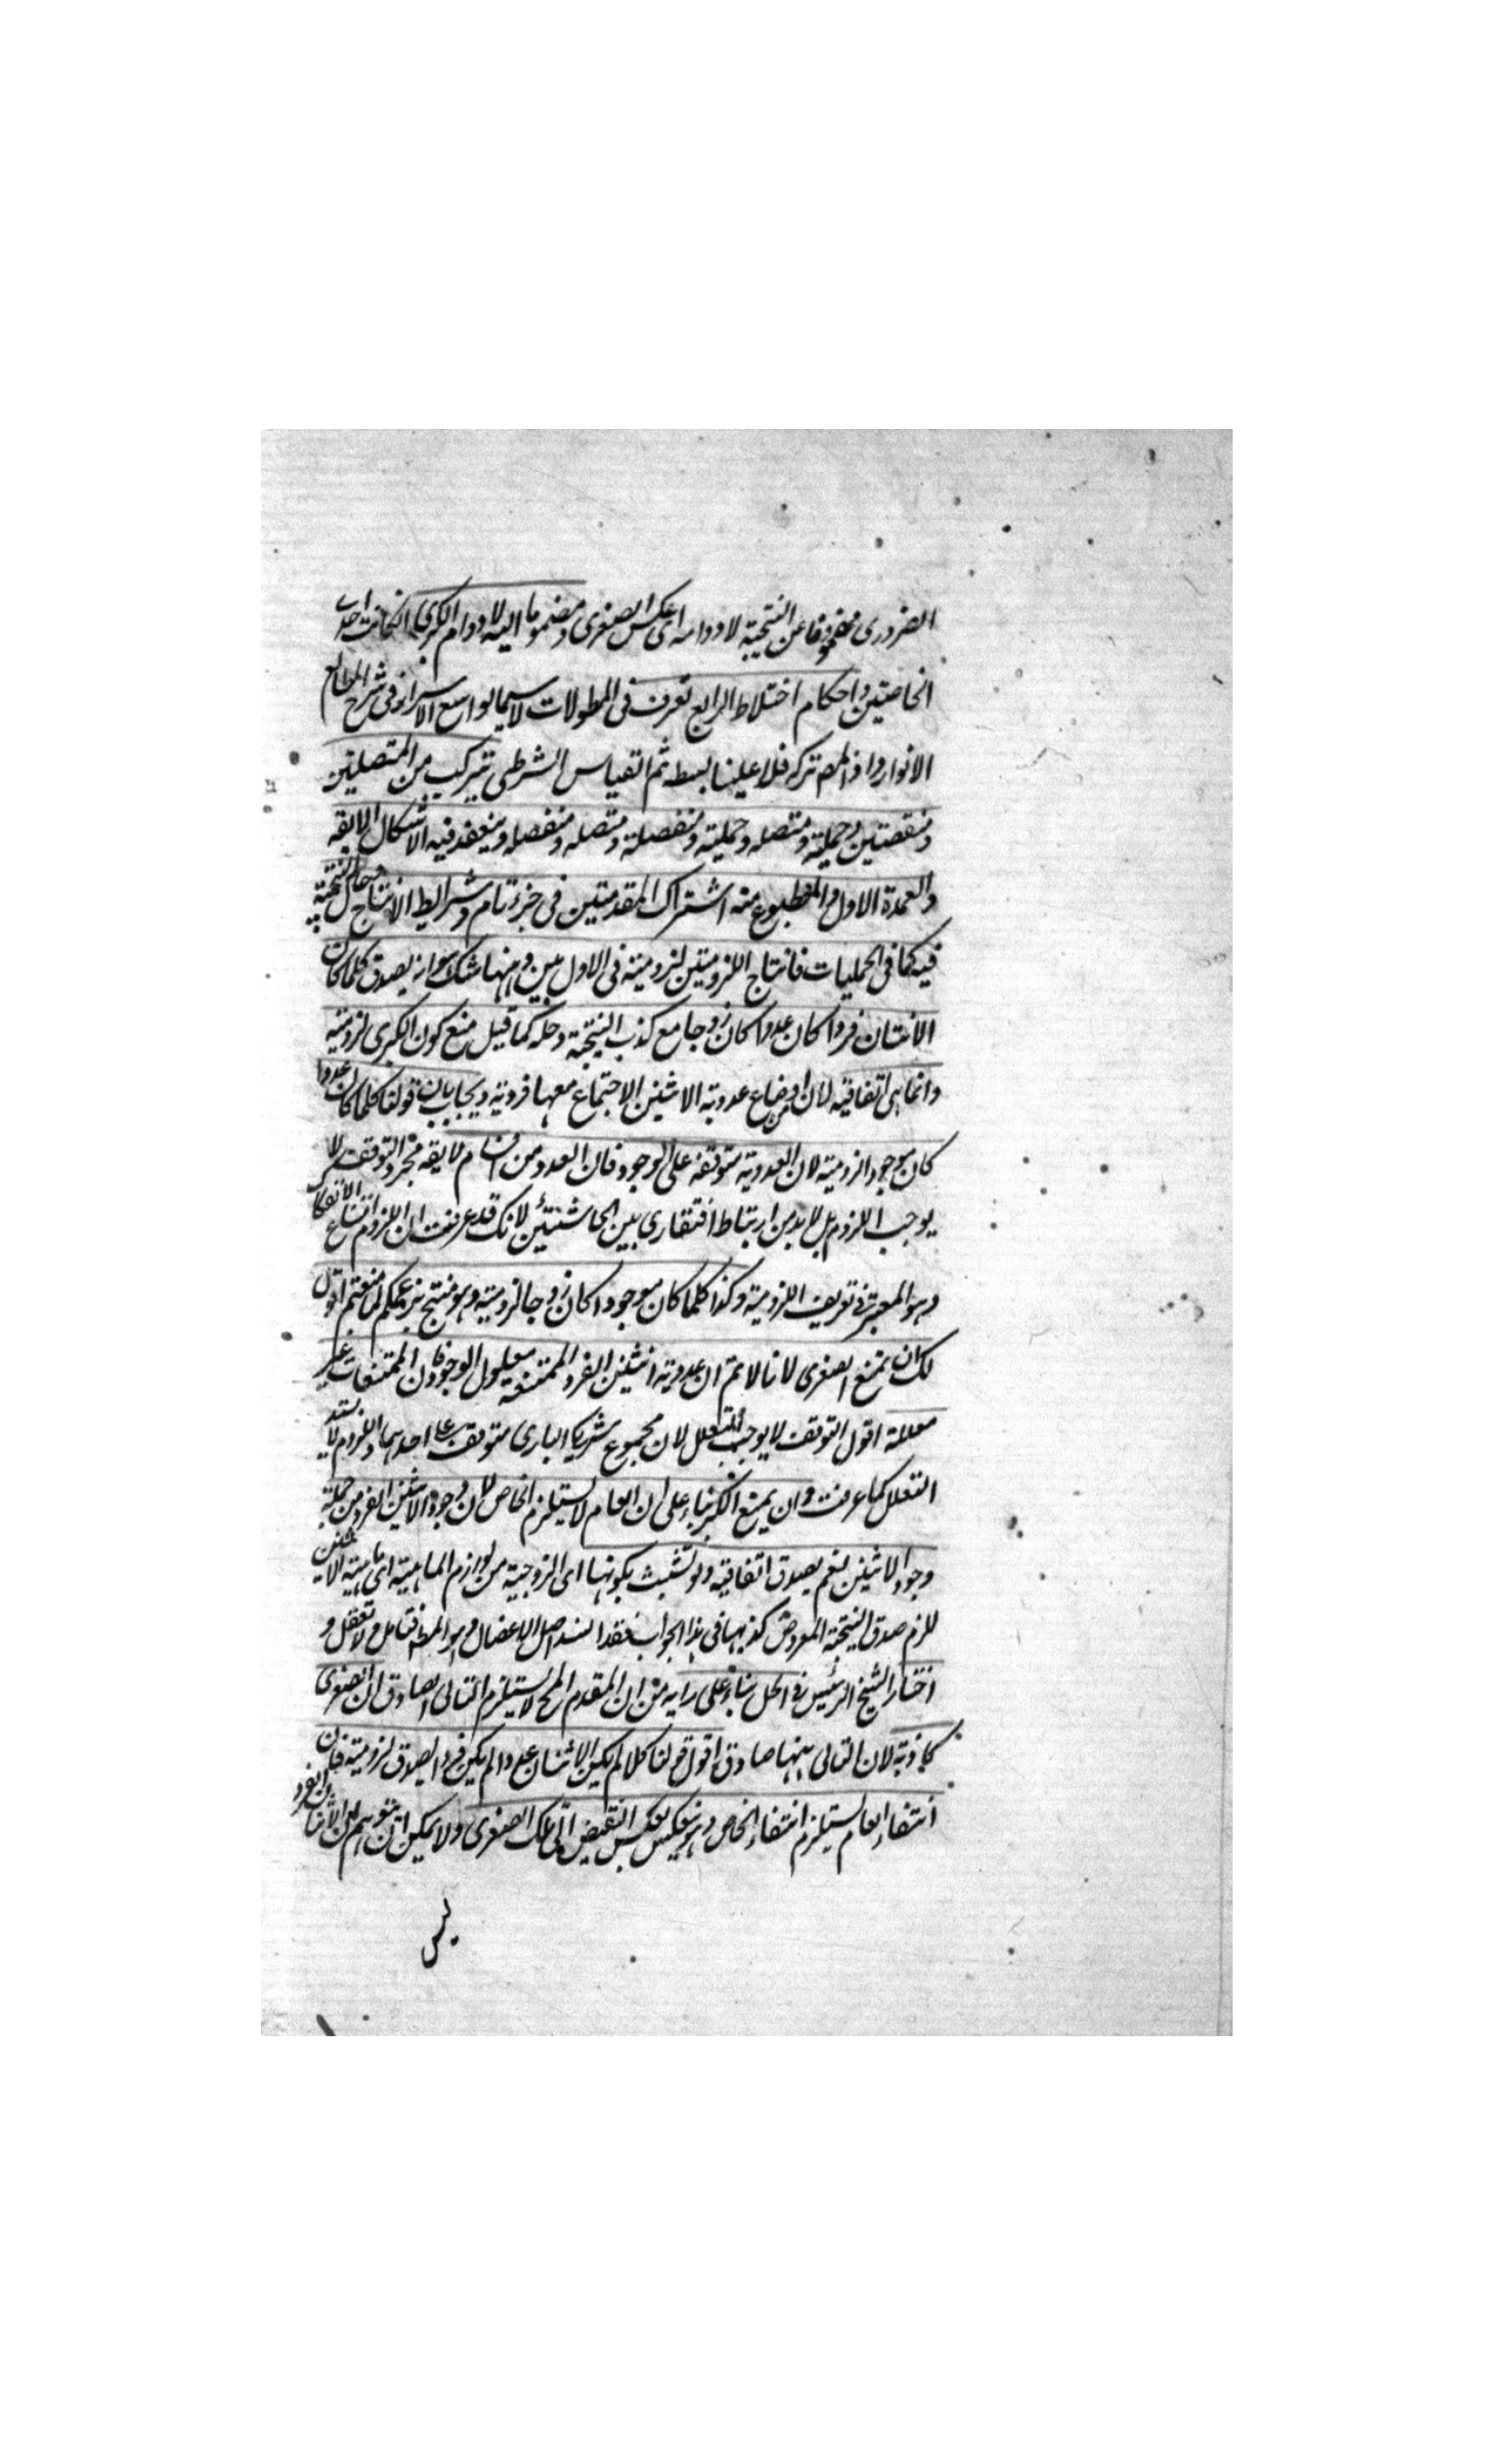 الضروری محفوفا عن النتیجة لا دوامه ای عکس الصغری و مضموما الیه لا دوام الکبری انکانت احدی
الخاصتین و احکام اختلاط الرابع تعرف فی المطولات لا سیما لوامع الاسرار فی شرح المطالع
الانوار و اذ المص ترکه فلا علینا بسطه ثم القیاس الشرطی یترکب من المتصلتین
و منفصلتین و حملیة و متصله و حملیة و منفصلة و متصله و منفصله و ینعقد فیه الاشکال الاربعة
والعمدة الاول والمطبوع منه اشتراک المقدمتین فی جزء تام و شرایط الانتاج و حال النتیجة
فیه کما فی الحملیات فانتاج اللزومیتین لزومیة فی الاول بین و ههنا شک هو انه یصدق کلما کان
الاثنان فردا کان عددا کان زوجا مع کذب النتیجة و حله کما قیل منع کون الکبری لزومیة
وانما هی اتفاقیه لان من اوضاع عددیة الاثنین الاجتماع معها فردیة و یجاب بان قولنا کلما کان عددا
کان موجودا لزومیة لان العددیة متوقفة علی الوجود فان العدد من لا یقه مجرد التوقف لا
یوجب اللزوم بل لا بد من ارتباط افتقاری بین الحاشیتین لانک قد عرفت ان اللزوم امتناع الانفکاک
و هو المعتبر فی تعریف اللزومیة و کذا کلما کان موجودا کان زوجا لزومیة و هو منتج بزعمکم لما منعتم اقول
لک ان تمنع الصغری لانا لا نم ان عددیة اثنین الفرد الممتنعة معلول الوجود فان الممتنعات غیر
معللة اقول التوقف لا یوجب التعلل لان مجموع شریکا الباری متوقف علی احدهما و اللزوم لا یستدعی
التعلل کما عرفت و ان یمنع الکبری بناء علی ان العام لا یستلزم الخاص لان وجود الاثنین الفرد من جملة
وجود الاثنین نعم یصدق اتفاقیه و لو تشبث بکونها ای الزوجیة من لوازم الماهیة ای ماهیة الاثنین
للزم صدق النتیجة المعروض کذبها فی هذا الجواب فقد انسد اصل الاعضال و هو المط فتامل و لا تغفل و
اختار الشیخ الرئیس فی الحل بناء علی رایه من ان المقدم المح لا یستلزم التالی الصادق ان الصغری
کاذبة لان التالی بینها صادق اقول قولنا کلما لم یکن الاثنان عددا لم یکن فردا یصدق لزومیة فان
انتفاء العام یستلزم انتفاء الخاص و هو ینعکس بعکس النقیض الی تلک الصغری و لا یمکن ان یتوهم ان الاثنان الفرد
لیس